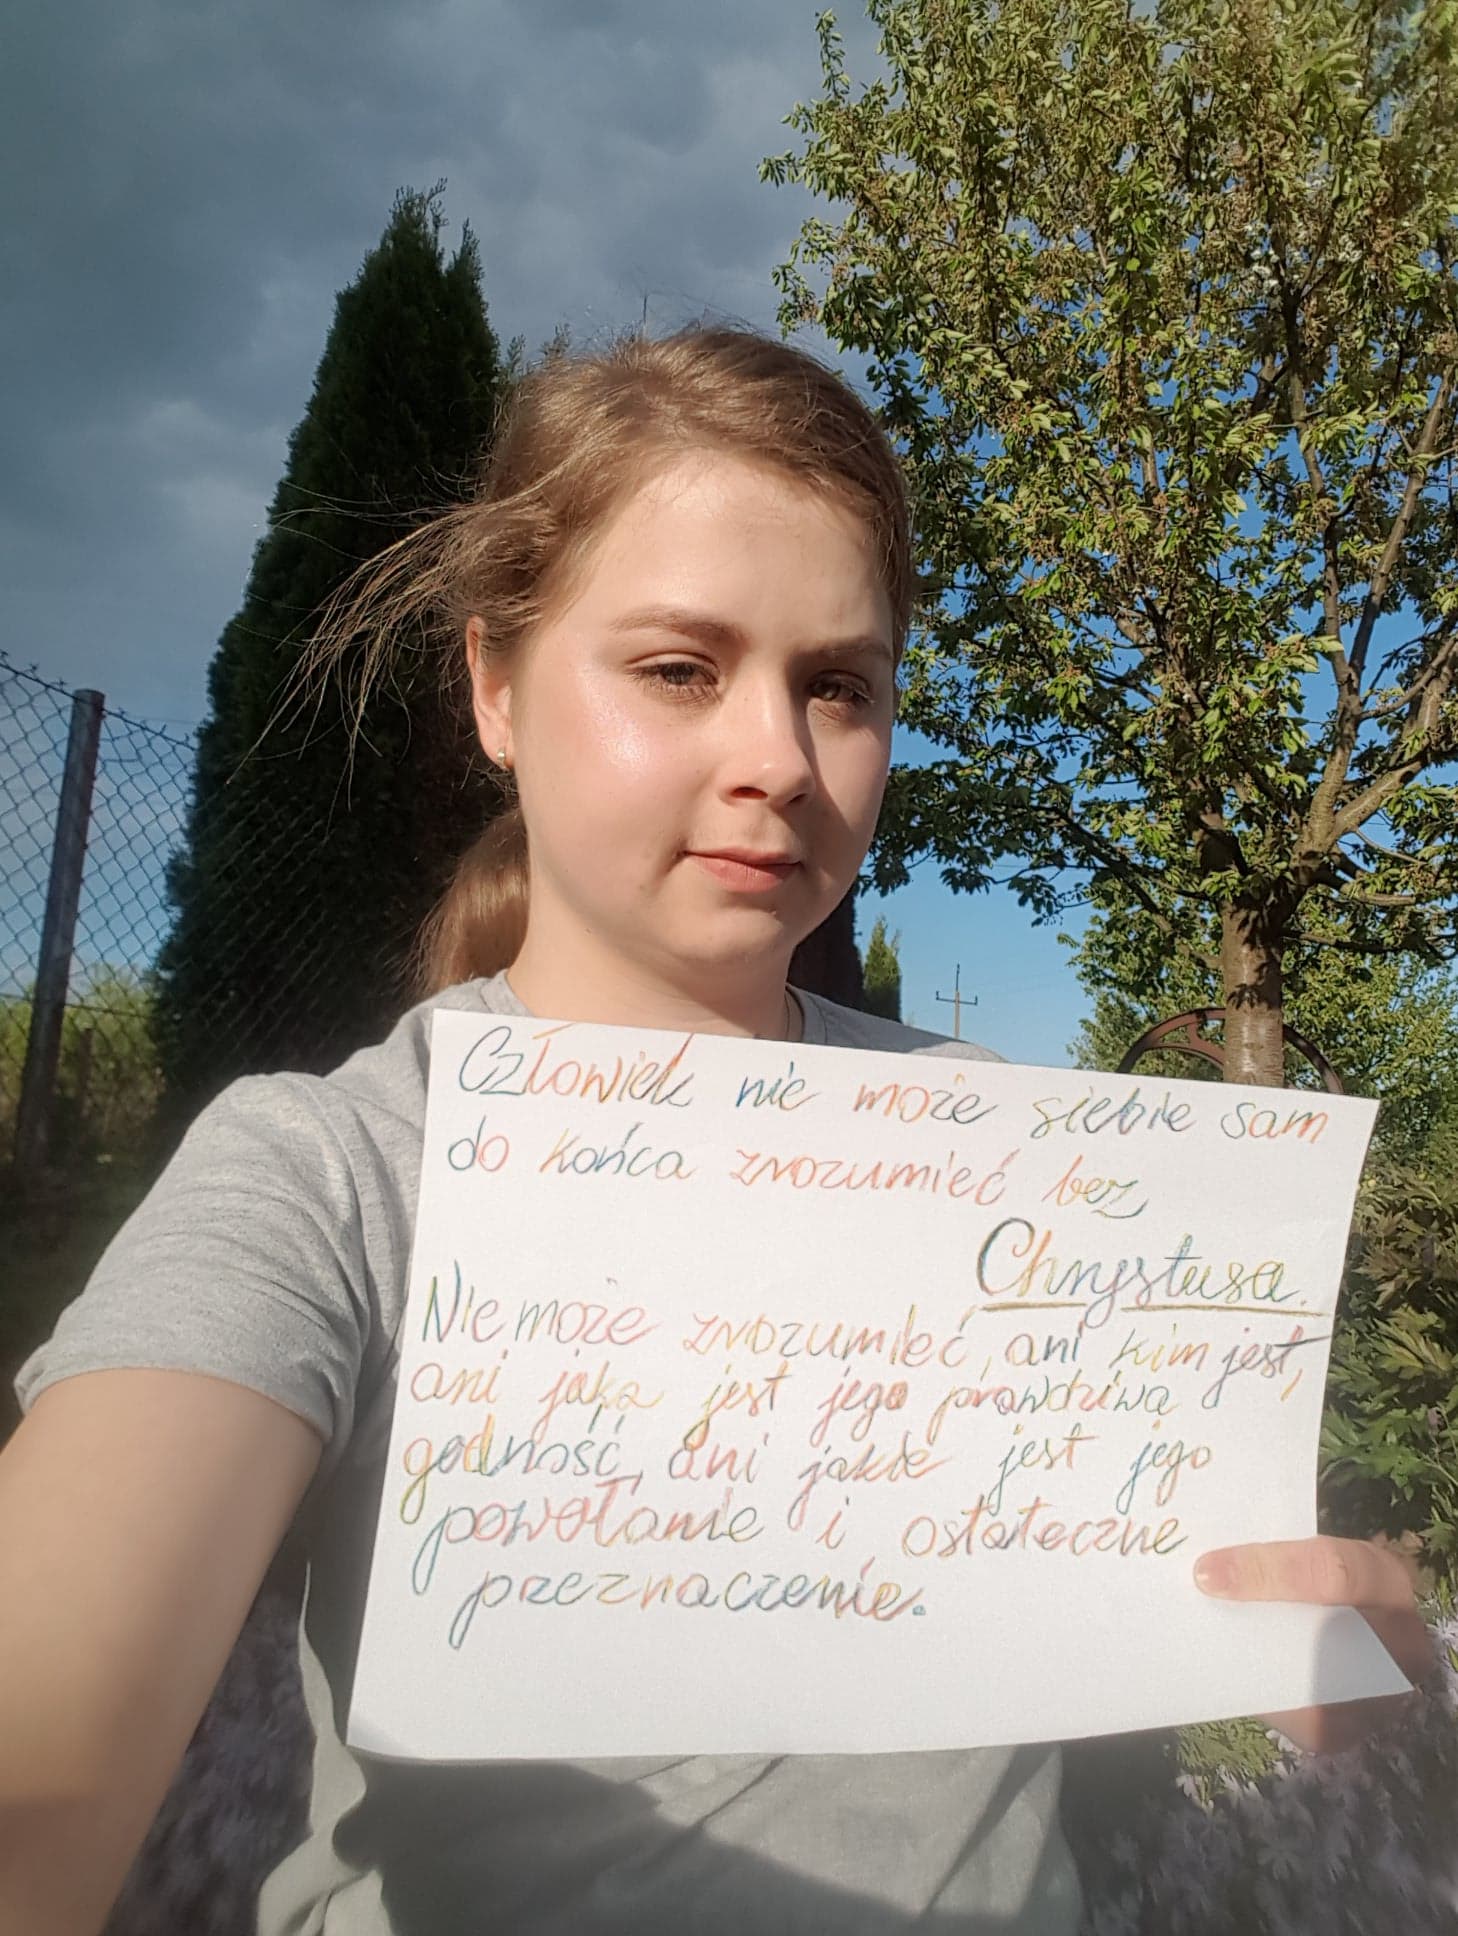 Człowiek nie może siebie sam
do końca zrozumieć bez
Chrystusa.
Nie może zrozumieć, ani kim jest,
ani jaka jest jego prawdziwa
godność, ani jakie jest jego
powołanie i ostateczne
przeznaczenie.